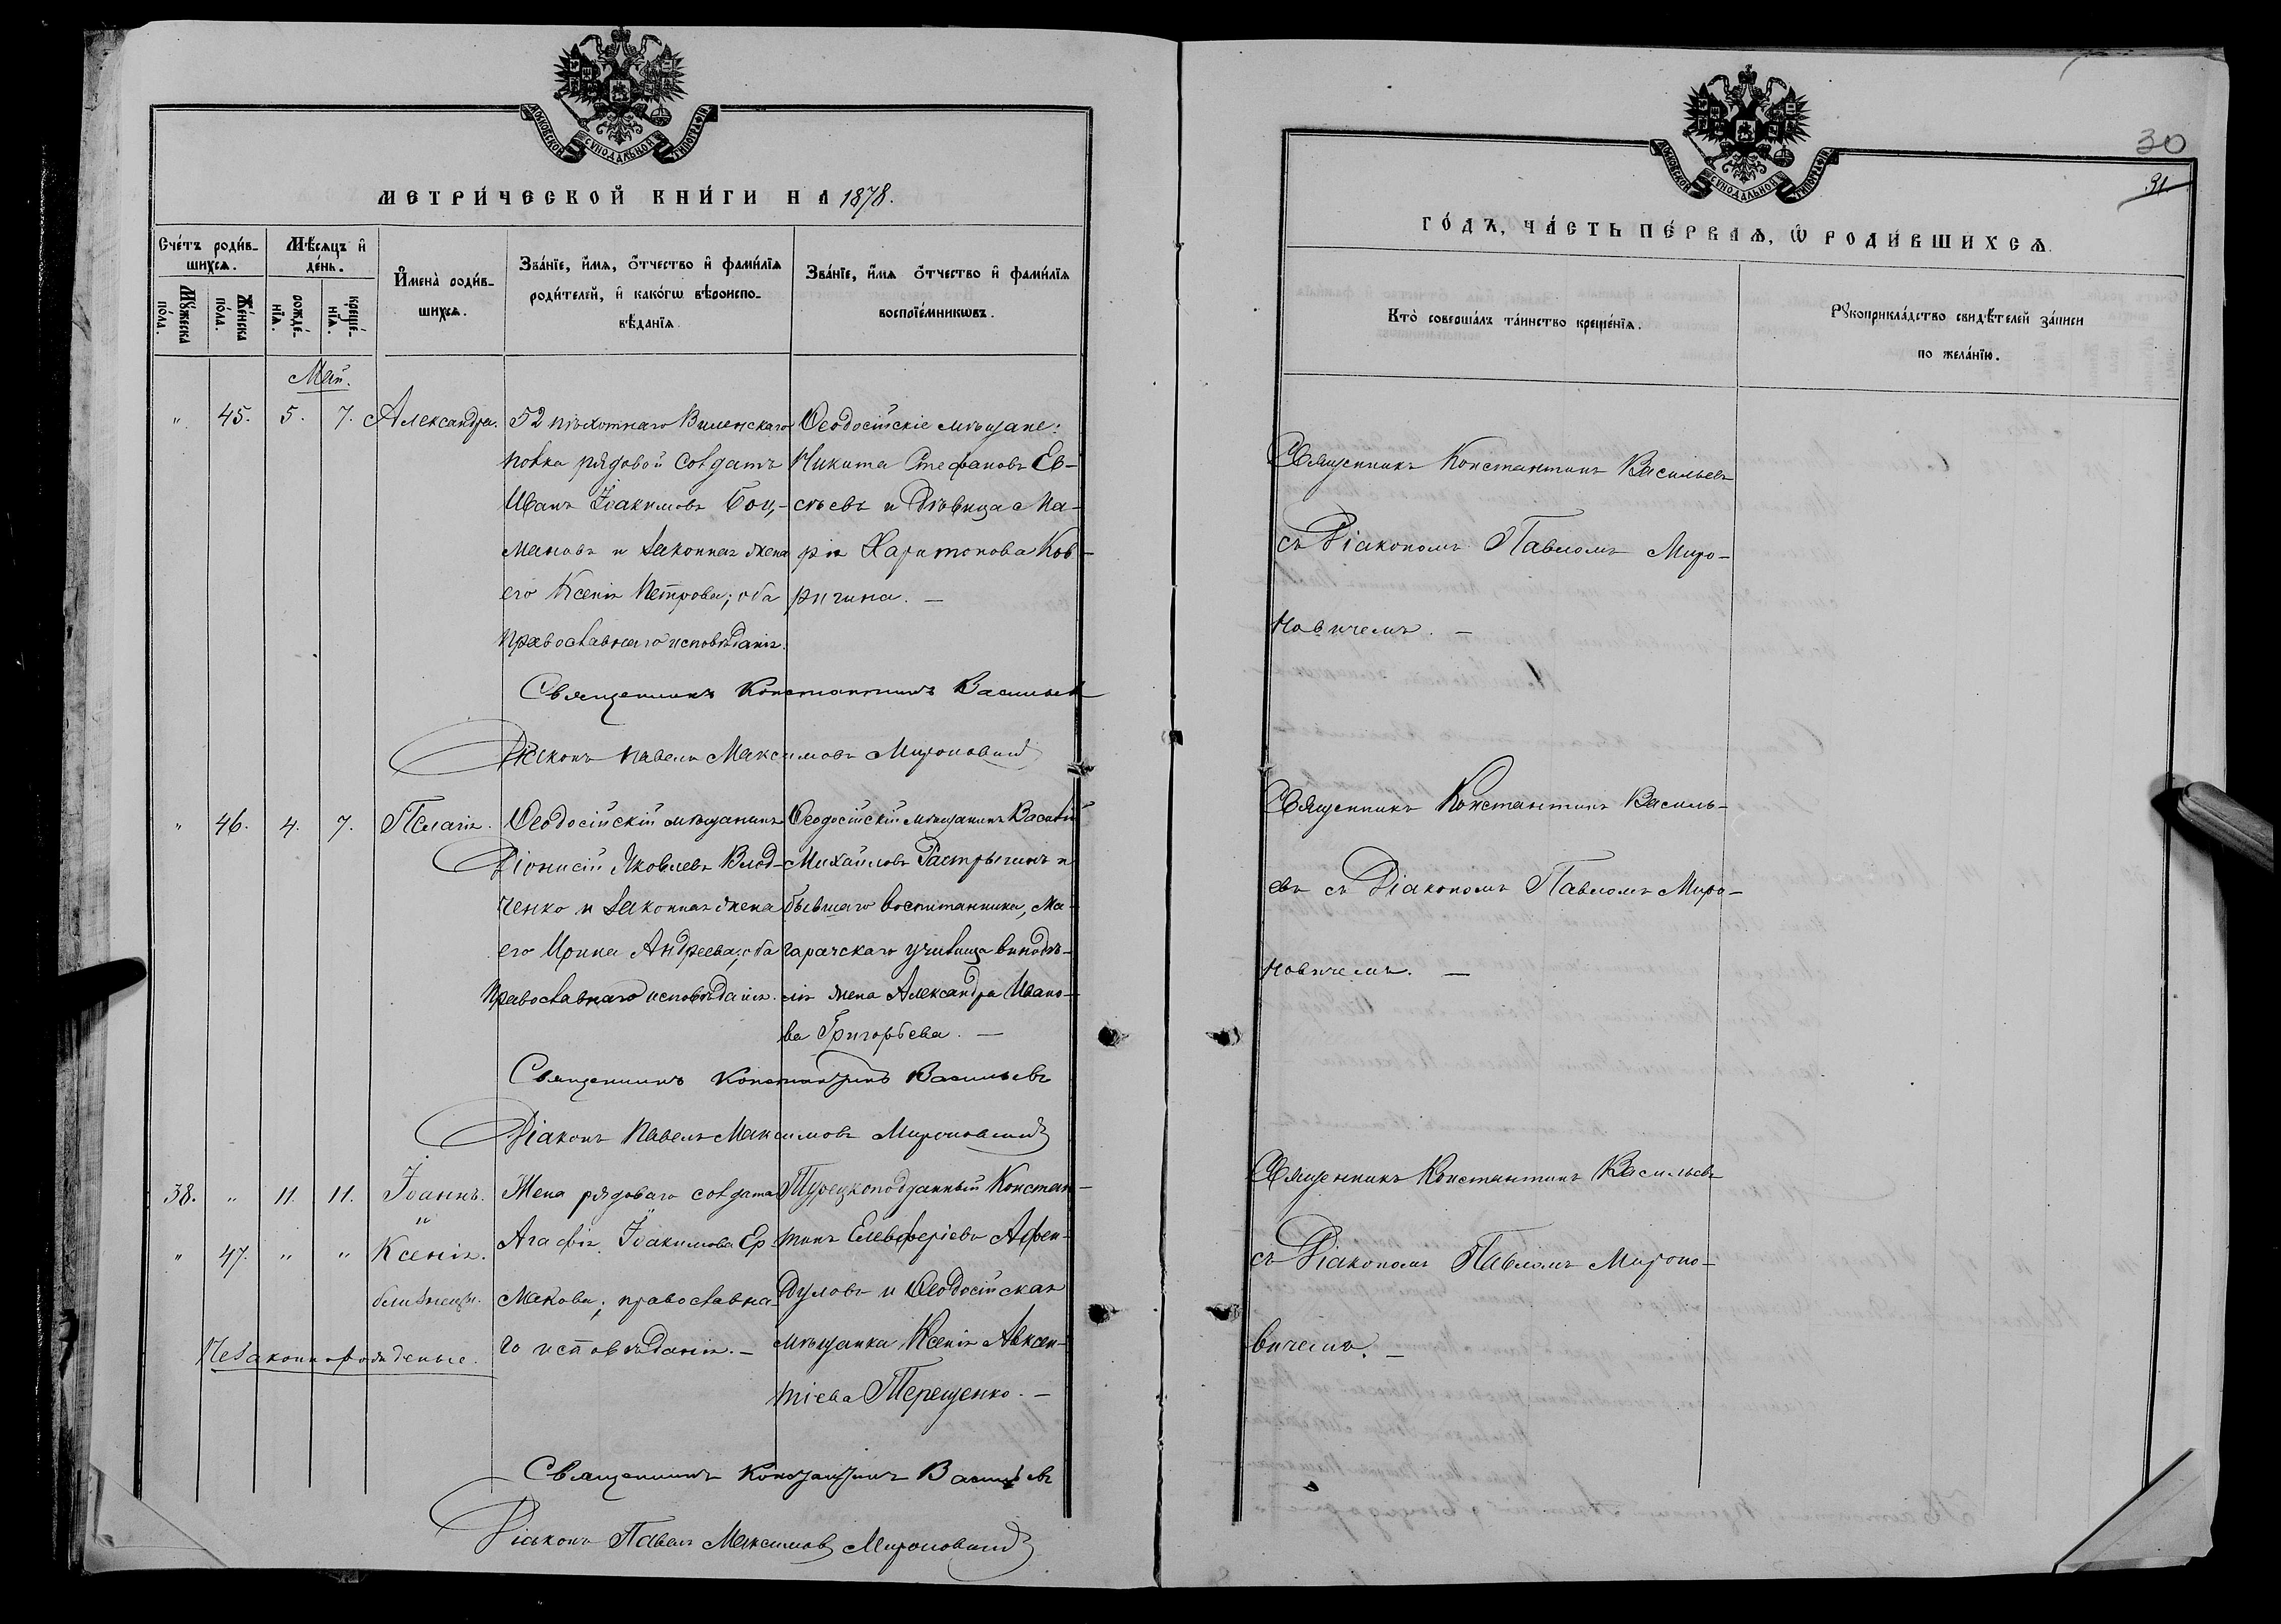 МОСКОВСКОЙ СѴНОДАЛЬНОЙ ТИПОГРАФІИ
МЕТРИ́ЧЕСКОЙ КНИ́ГИ НА 1878.
Сче́тъ роди́в-
шихся.
Мѣ́сяцъ и҆
де́нь.
Мꙋ́жеска
по́ла.
Же́нска
по́ла.
рожде́-
нїя.
креще́-
нїя.
И҆мена̀ роди́в-
шихся.
Зва́нїе, и҆́мя, ѻ҆́тчество и҆ фами́лїя
роди́телей, и҆ како́гѡ вѣроиспо-
вѣ́данїя.
Зва́нїе, и҆́мя ѻ҆́тчество и҆ фами́лїя
воспрїе́мникѡвъ.
Май.
" 45. 5. 7. Александра.
52 пѣхотнаго Виленскаго
полка рядовой солдатъ
Иванъ Іоакимовъ Боц-
мановъ и законная жена
его Ксенія Петрова; оба
православнаго исповѣданія.
Ѳеодосійскіе мѣщане:
Никита Стефановъ Ев-
сѣевъ и дѣвица Ма-
рія Харитонова Ков-
ригина. —
Священникъ Константинъ Васильевъ
Діаконъ Павелъ Максимовъ Мироновичъ
" 46. 4. 7. Пелагія.
Ѳеодосійскій мѣщанинъ
Діонисій Яковлевъ Влад-
ченко и законная жена
его Ирина Андреева; оба
православнаго исповѣданія.
Ѳеодосійскій мѣщанинъ Василій
Михайловъ Растрыгинъ и
бывшаго воспитанника, Ма-
гарачскаго училища винодѣ-
лія жена Александра Ивано-
ва Григорьева. —
Священникъ Константинъ Васильевъ
Діаконъ Павелъ Максимовъ Мироновичъ
38. " 11. 11. Іоаннъ.
"
" 47. " " Ксенія.
близнецы.
Незаконнорожденые.
Жена рядоваго солдата
Агафія Іоакимова Ер-
макова; православна-
го исповѣданія. —
Турецкоподданный Констан-
тинъ Елевферіевъ Афен-
дуловъ и Ѳеодосійская
мѣщанка Ксенія Авксен-
тіева Терещенко. —
Священникъ Константинъ Васильевъ
Діаконъ Павелъ Максимовъ Мироновичъ
МОСКОВСКОЙ СѴНОДАЛЬНОЙ ТИПОГРАФІИ
30
31
ГО́ДЪ, ЧА́СТЬ ПЕ́РВАЯ, Ѽ РОДИ́ВШИХСЯ.
Кто̀ соверша́лъ та́инство креще́нїя.
Рꙋкоприкла́дство свидѣ́телей за́писи
по жела́нїю.
Священникъ Константинъ Васильевъ
съ Діакономъ Павломъ Миро-
новичемъ. —
Священникъ Константинъ Василь-
евъ съ Діакономъ Павломъ Миро-
новичемъ. —
Священникъ Константинъ Васильевъ
съ Діакономъ Павломъ Мироно-
вичемъ. —